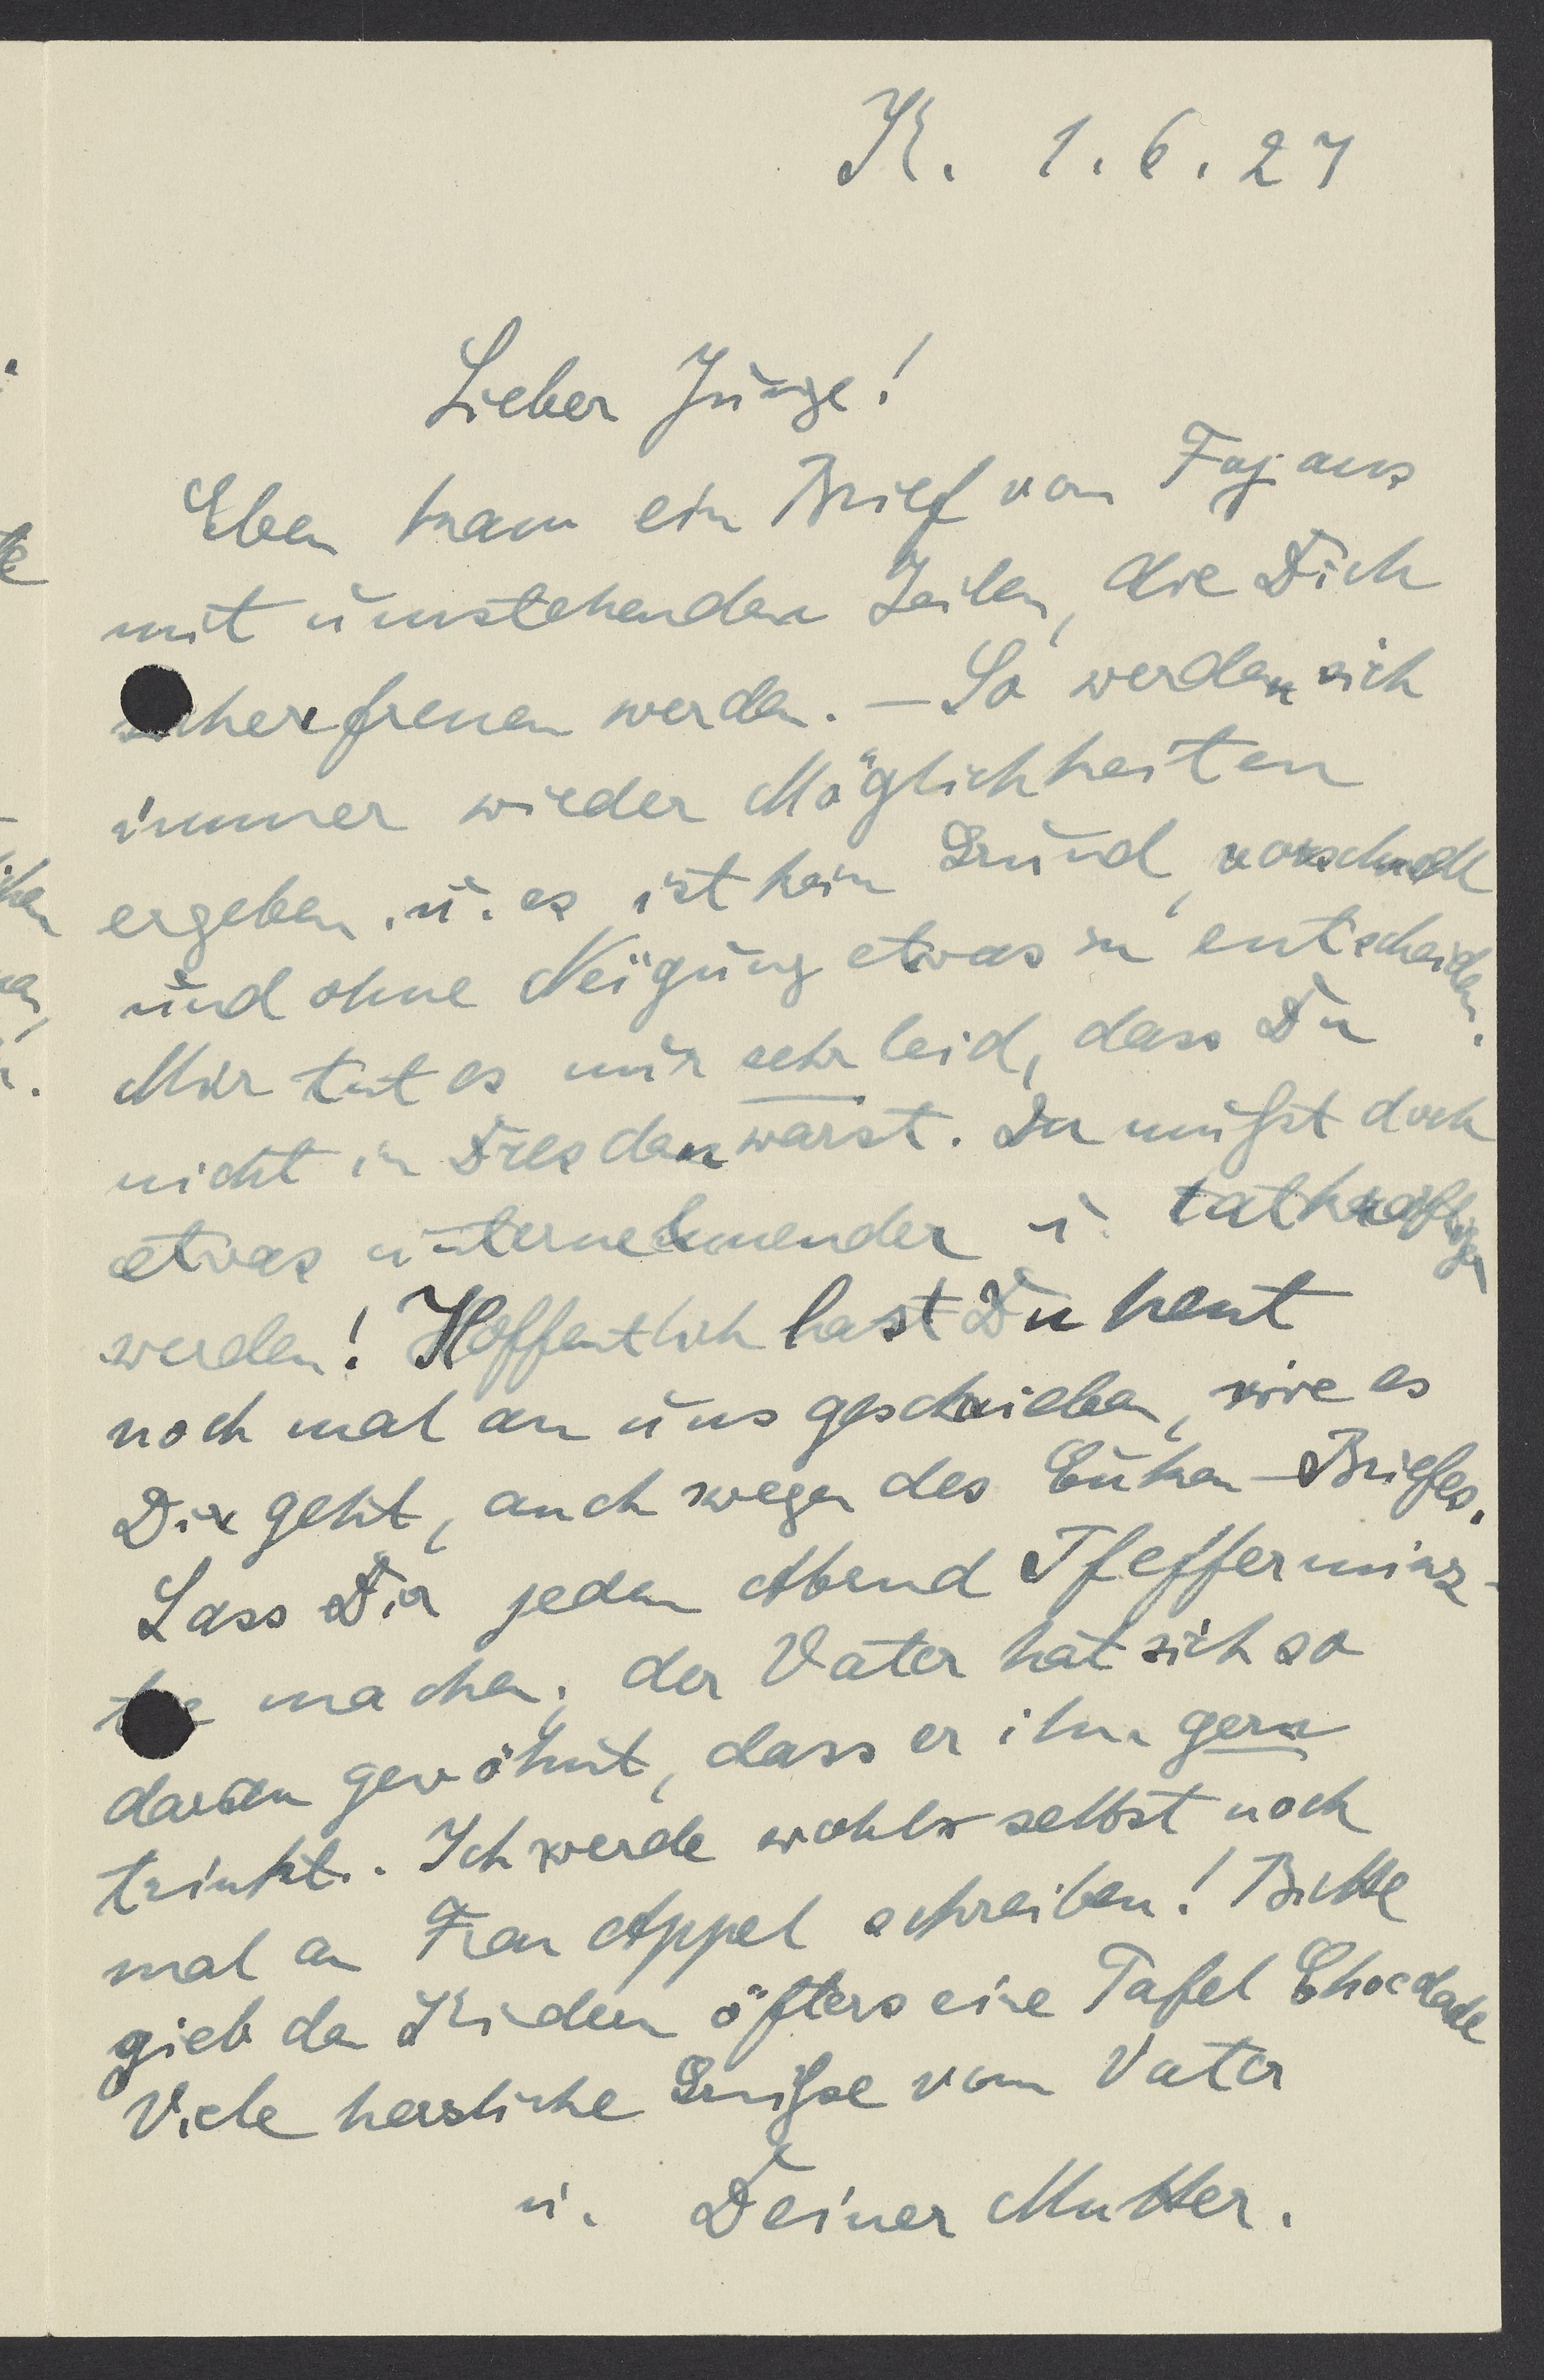 K. 1.6.27
Lieber Junge!
Eben kam ein Brief von Fajans
mit umstehenden Zeilen, die Dich
sicher freuen werden. – So werden sich
immer wieder Möglichkeiten
ergeben u. es ist kein Grund, vorschnell
und ohne Neigung etwas zu entscheiden.
Mir tut es nur sehr leid, dass Du
nicht in Dresden warst. Du mußt doch
etwas unternehmender u. tatkräftiger
werden! Hoffentlich hast Du heut
noch mal an uns geschrieben, wie es
Dir geht, auch wegen des Euken-Briefes.
Lass Dir jeden Abend Pfefferminz-
tee machen; der Vater hat sich so
daran gewöhnt, dass er ihn gern
trinkt. Ich werde wohl selbst noch
mal an Frau Appel schreiben! Bitte
gieb den Kindern öfters eine Tafel Chocolade
Viele herzliche Grüße vom Vater
u. Deiner Mutter.